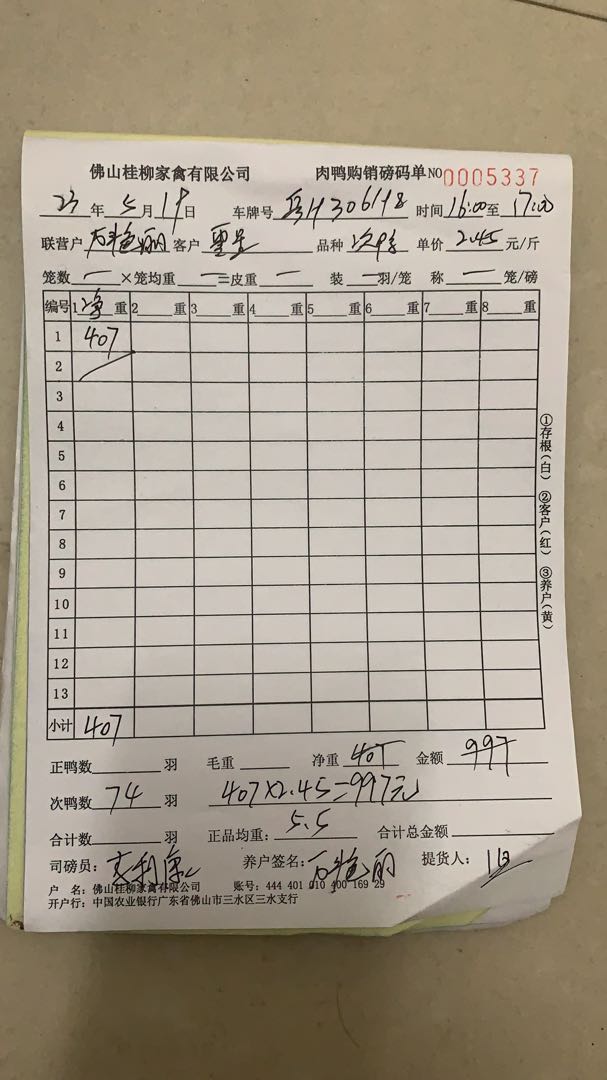 佛山桂柳家禽有限公司 肉鸭购销磅码单 NO 0005337
23 年 5 月 19 日 车牌号 时间 16:00 至 17:00
联营户 丽 客户 品种 次 单价 2.45 元/斤
笼数 一 ×笼均重 一 =皮重 一 装 一 羽/笼 称 一 笼/磅
编号 1 净 重 2 重 3 重 4 重 5 重 6 重 7 重 8 重
1 407
2
3
4
5
6
7
8
9
10
11
12
13
小计 407
正鸭数 羽 毛重 净重 407 金额 997
次鸭数 74 羽 407×2.45=997元
合计数 羽 正品均重: 5.5 合计总金额
司磅员: 养户签名: 丽 提货人:
户 名: 佛山桂柳家禽有限公司 账号: 444 401 010 400 169 29
开户行: 中国农业银行广东省佛山市三水区三水支行
①存根(白) ②客户(红) ③养户(黄)